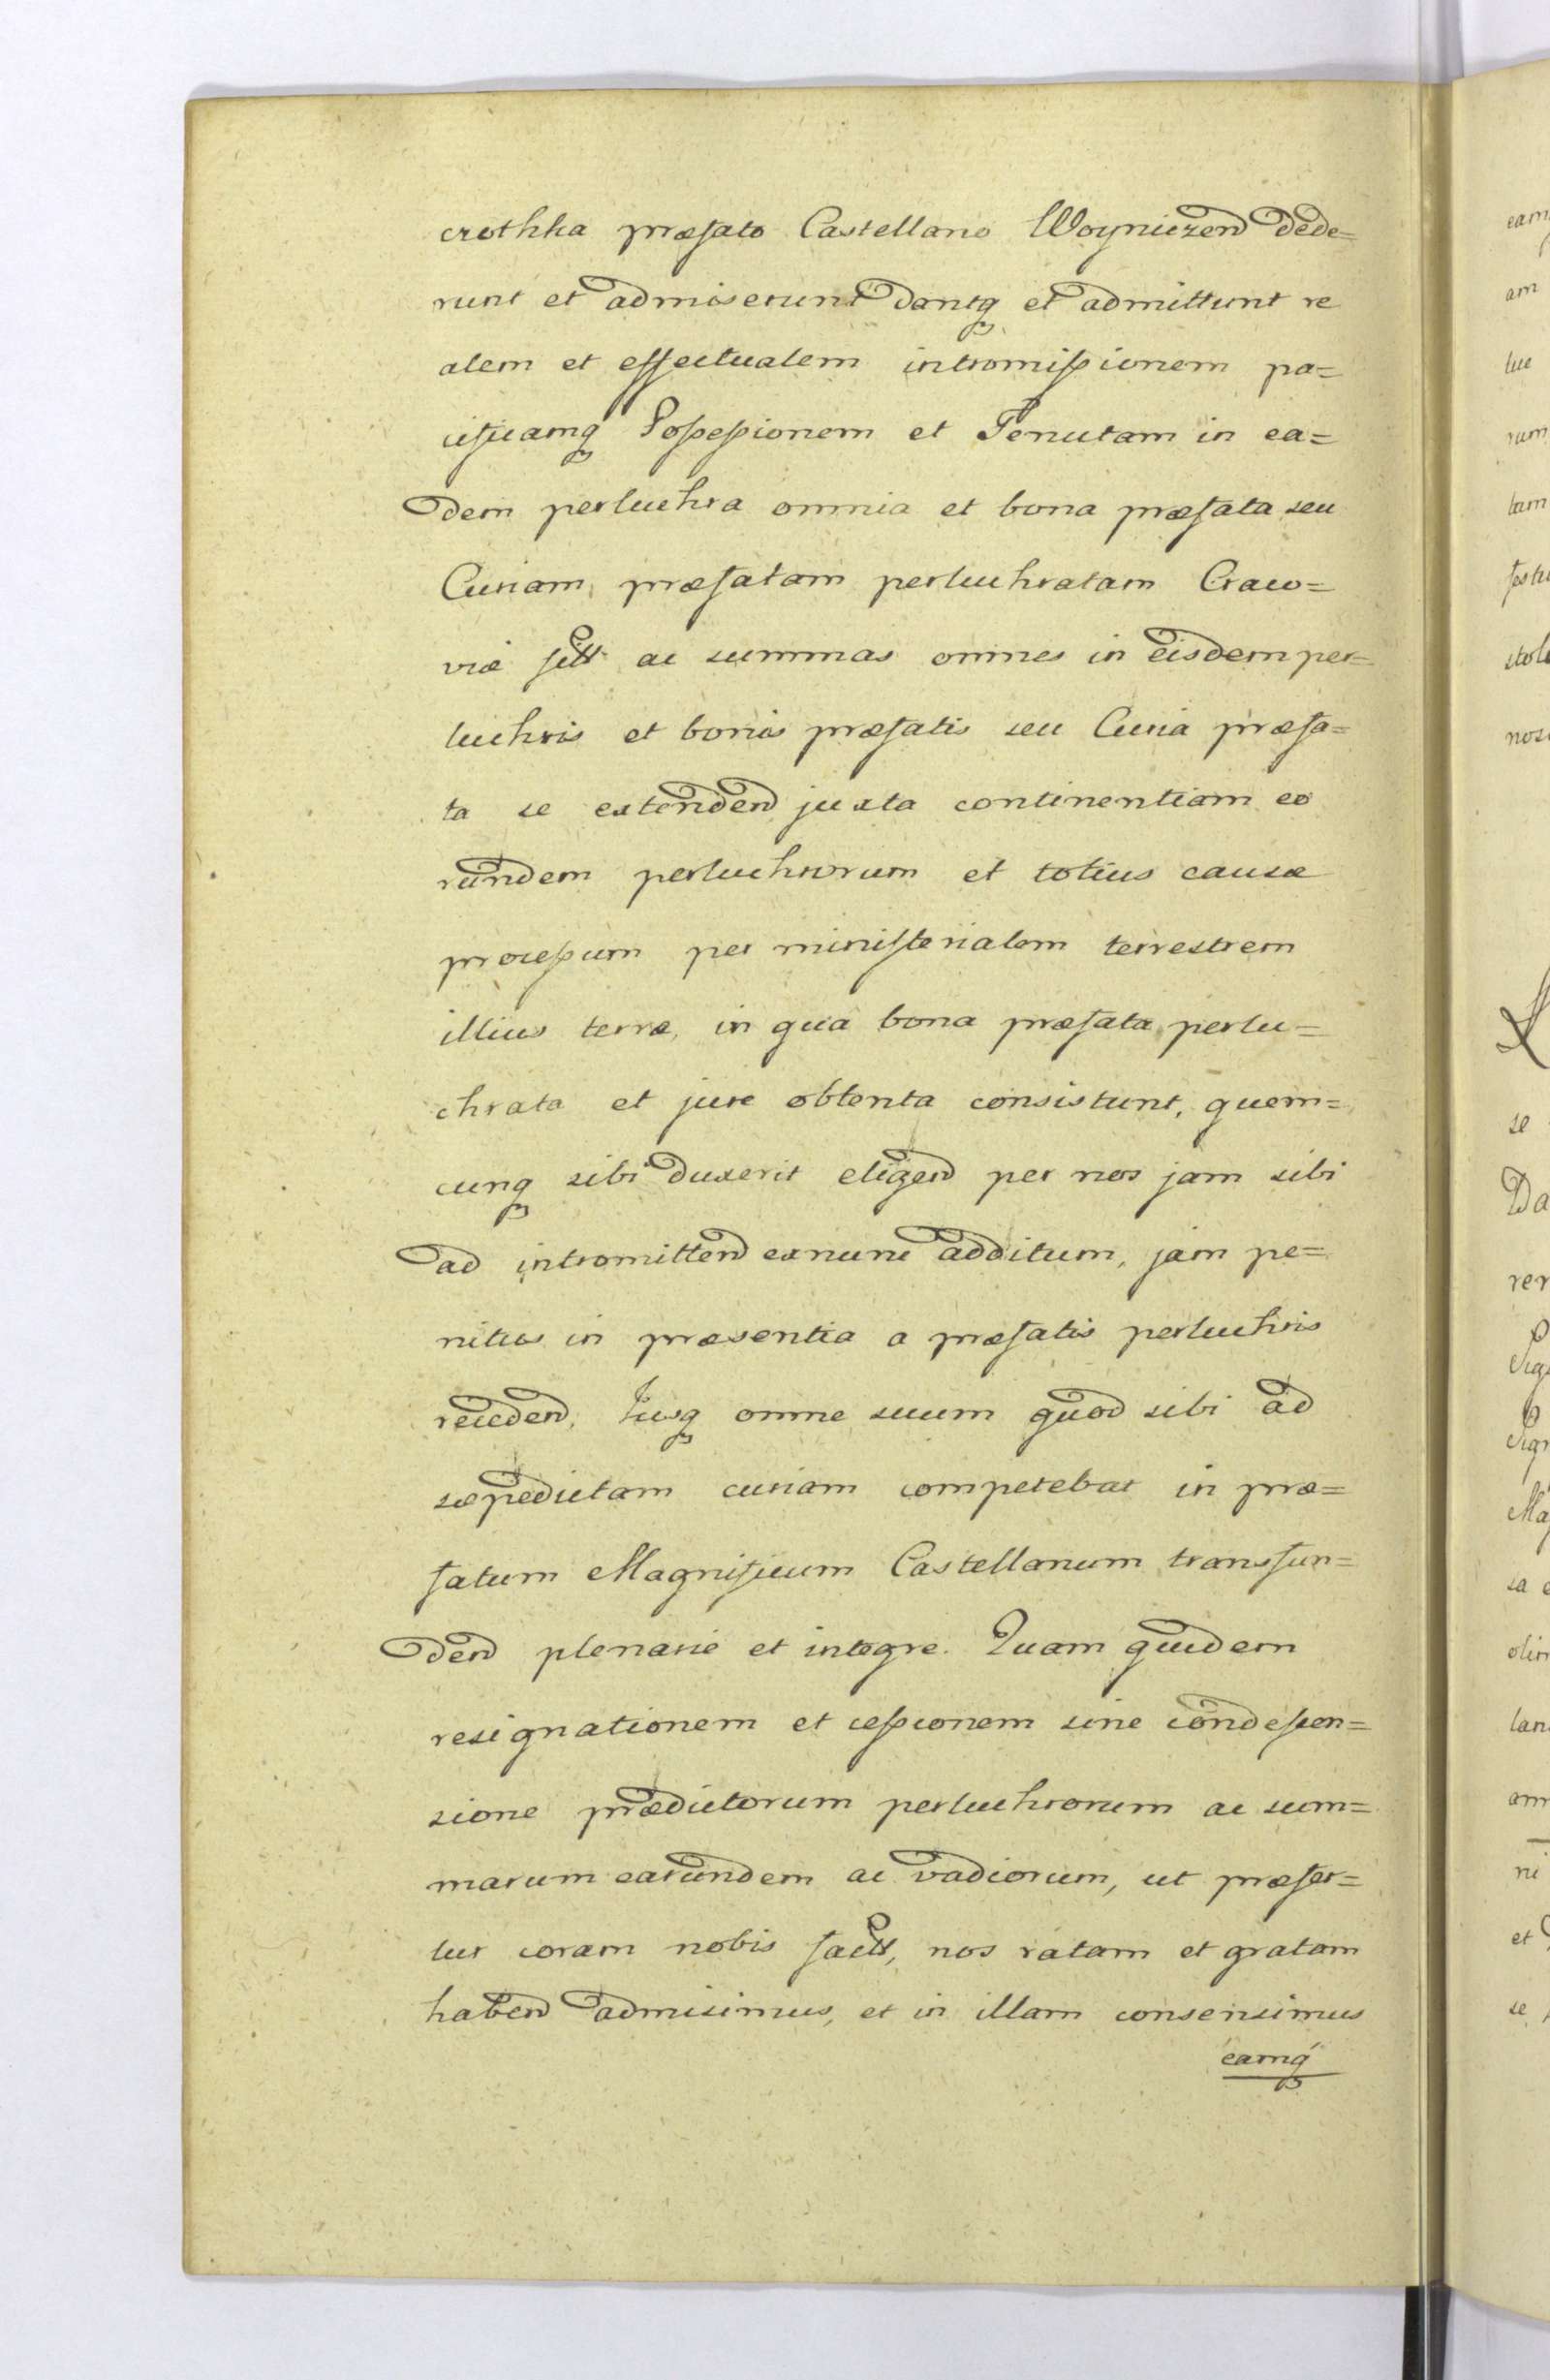 crothka præfato Castellano Woyniczen dede=
runt et admiserunt dantq et admittunt re
alem et effectualem intromissionem pa=
cificamq Possessionem et Tenutam in ea=
dem perluchra omnia et bona præfata seu
Curiam præfatam perluchratam Craco=
viæ sitt ac summas omnes in eisdem per=
luchris et bonis præfatis seu Curia præfa=
ta se extenden juxta continentiam eo
rundem perluchrorum et totius causæ
processum per ministerialem terrestrem
illius terræ, in qua bona præfata perlu=
chrata et jure obtenta consistunt, quem=
cunq sibi duxerit eligen per nos jam sibi
ad intromitten exnunc additum, jam pe=
nitus in præsentia a præfatis perluchris
receden, Jusq omne suum quod sibi ad
sæpedictam curiam competebat in præ=
fatum Magnificum Castellanum transfun=
den plenarie et integre. Quam quidem
resignationem et cessionem sine condescen=
sione prædictorum perluchrorum ac sum=
marum earundem ac vadiorum, ut præfer=
tur coram nobis factt, nos ratam et gratam
haben admisimus, et in illam consensimus
eamq
eam
am
rum
tam
se
Da
rer
sa
olim
lan
am
ni
et
se